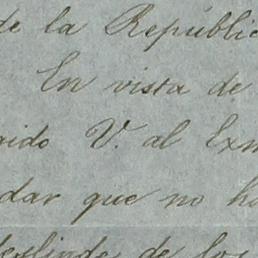 de la Repúblic
En vista de
aido V. al Exm
dar que no ha
deslinde de los